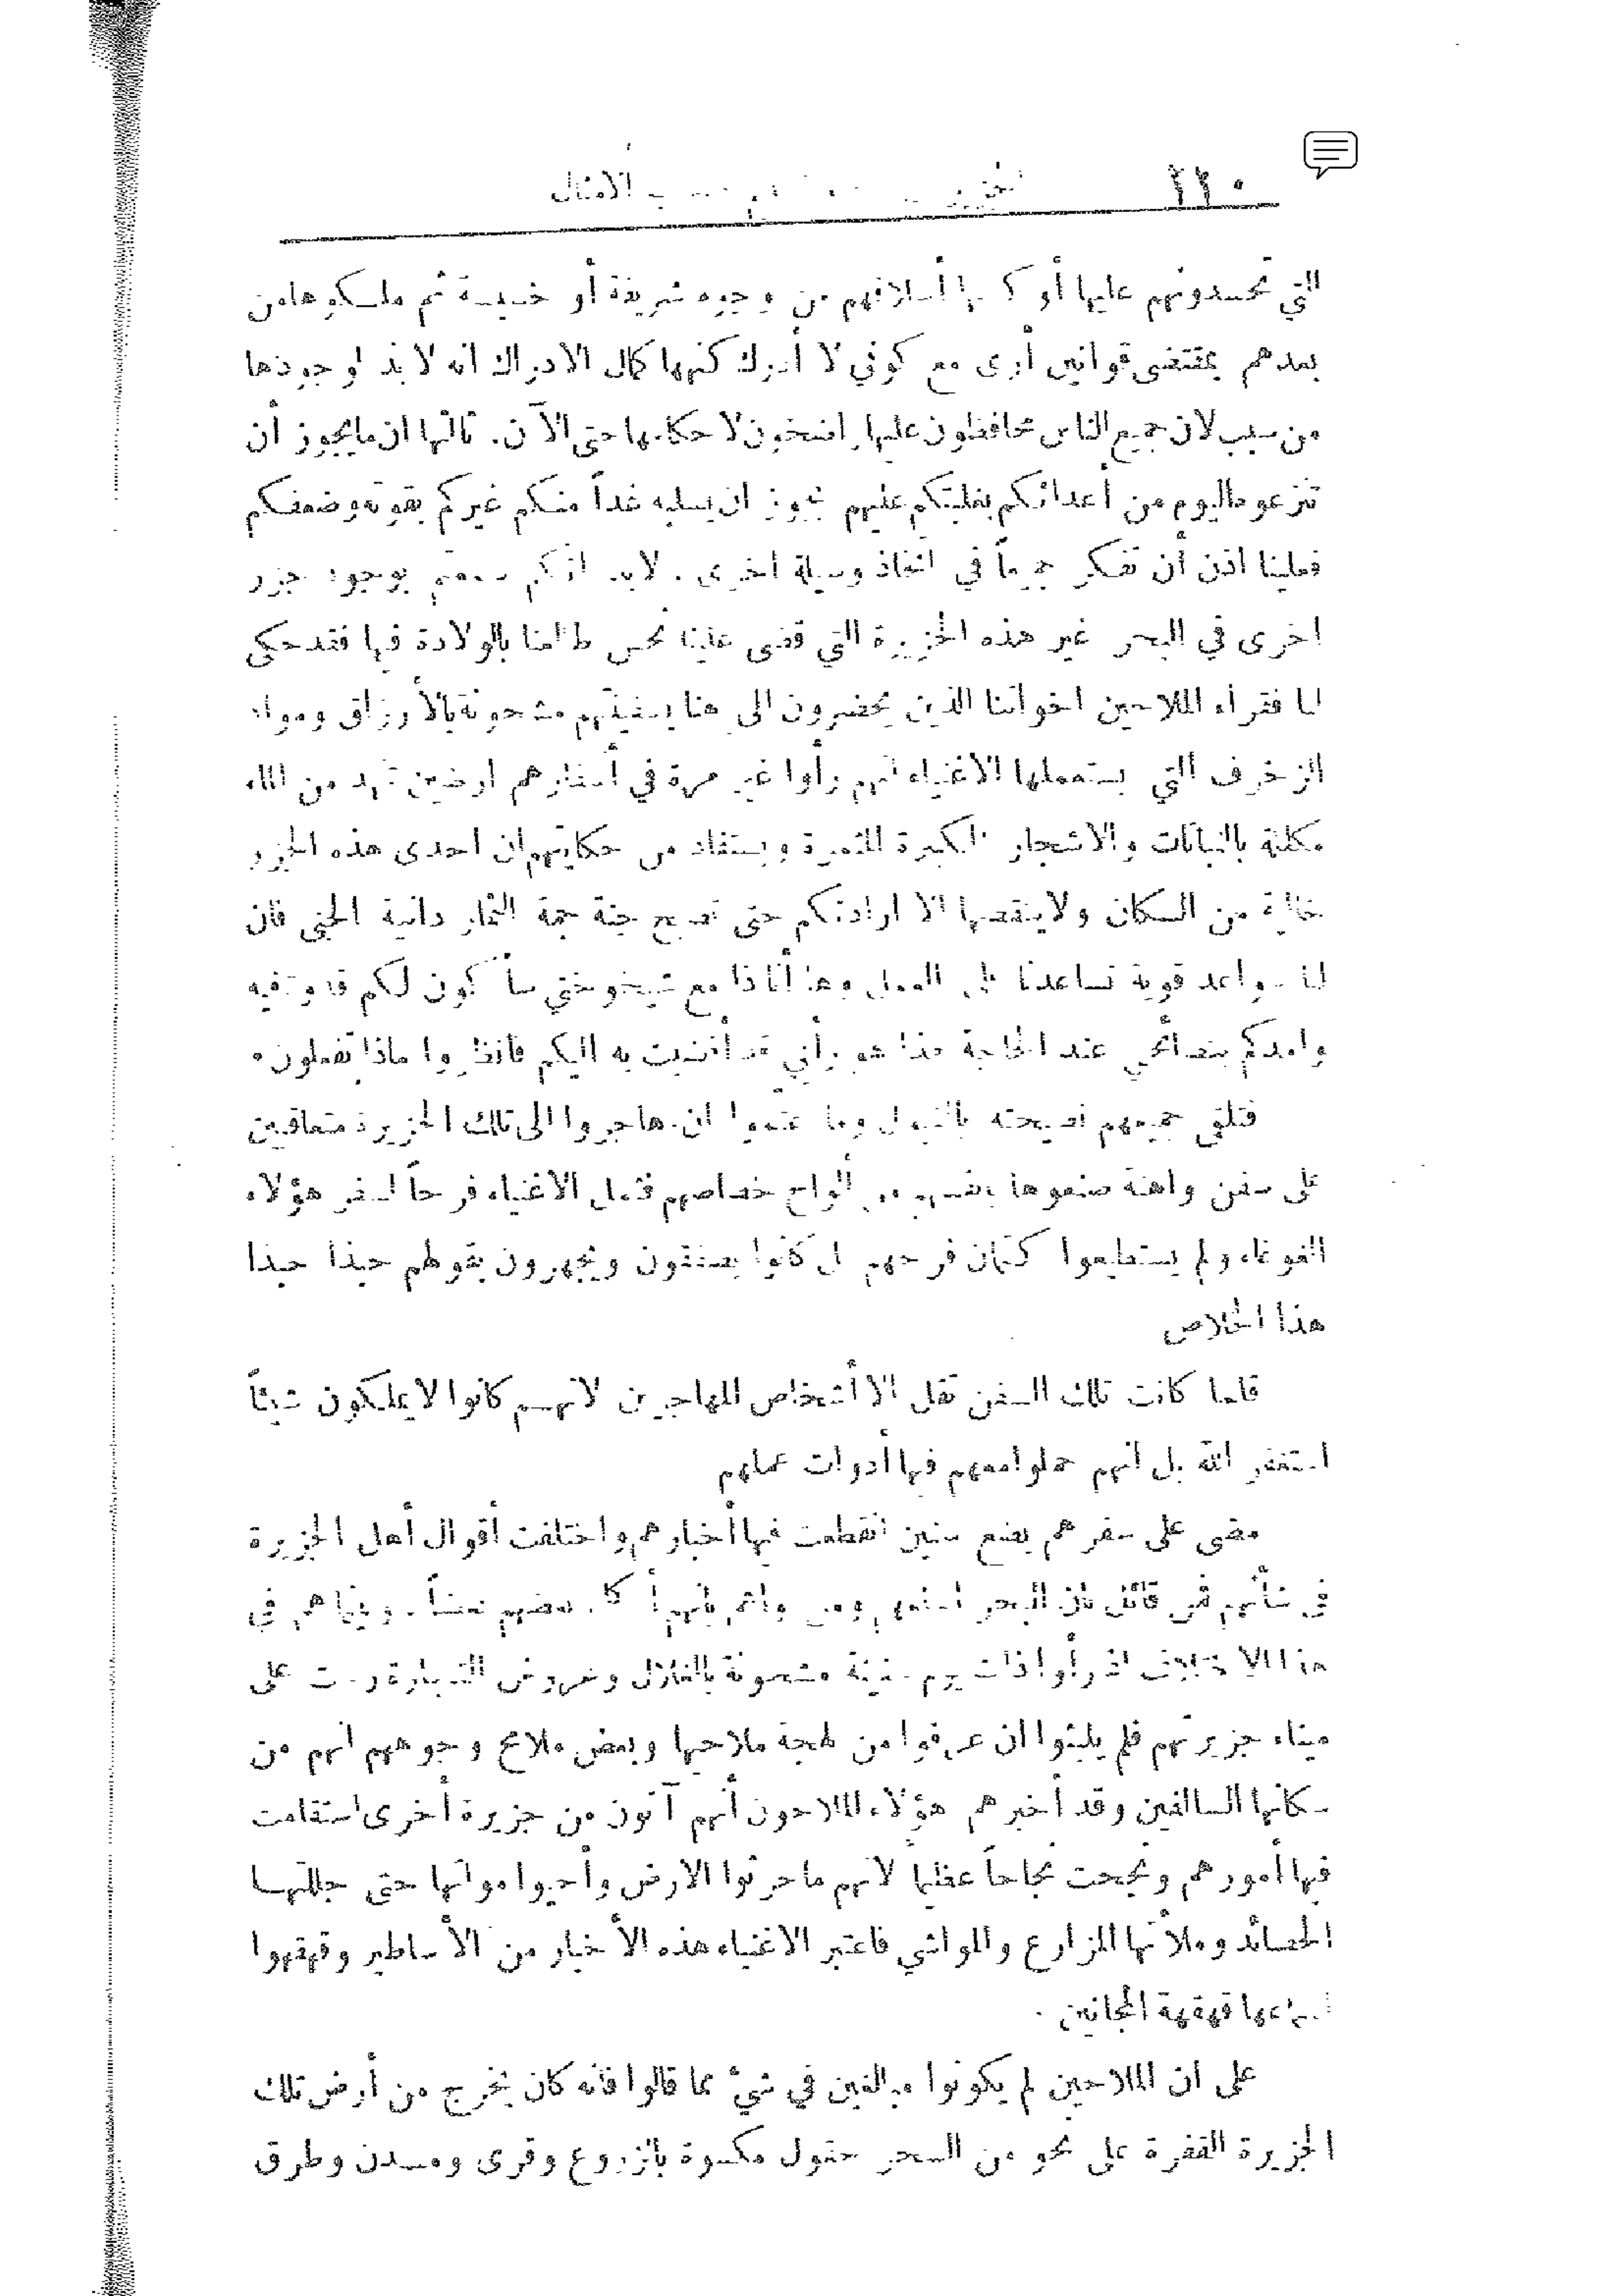 ٢٢٠ الأمثال
التي تحسدونهم عليها أو أسلافهم من وجوه شريفة أو خسيسة ثم ملكوها من
بعدهم بمقتضى قوانين أرى مع كوني لا أدرك كنهها كمال الادراك انه لا بد لوجودها
من سبب لان جميع الناس محافظون عليها خاضعون لاحكامها حتى الآن. ثالثها ان ما يجوز أن
تنزعوه اليوم من أعدائكم بغلبتكم عليهم يجوز ان يسلبه غداً منكم غيركم بقوته وضعفكم
فعلينا اذن أن نفكر جميعاً في اتخاذ وسيلة اخرى. لابد انكم سمعتم بوجود جزر
اخرى في البحر غير هذه الجزيرة التي قضى علينا نحس طالعنا بالولادة فيها فقد حكى
لنا فقراء الملاحين اخواننا الذين يحضرون الى هنا بسفينتهم مشحونة بالأرزاق ومواد
الزخرف التي يستعملها الاغنياء انهم رأوا غير مرة في أسفارهم ارضين من الماء
مكللة بالنباتات والاشجار الكبيرة المثمرة ويستفاد من حكايتهم ان احدى هذه الجزر
خالية من السكان ولا ينقصها الا ارادتكم حتى تصبح جنة جمة الثمار دانية الجنى فان
لنا سواعد قوية تساعدنا على العمل وها أنا ذا مع شيخوختي سأكون لكم قدوة فيه
وامدكم بنصائحي عند الحاجة هذا هو رأيي قد أفضيت به اليكم فانظروا ماذا تفعلون •
فتلقى جميعهم نصيحته بالقبول وما عتموا ان هاجروا الى تلك الجزيرة متعاقبين
على سفن واهنة صنعوها بأنفسهم من ألواح خصاصهم فثمل الاغنياء فرحاً لسفر هؤلاء
الغوغاء ولم يستطيعوا كتمان فرحهم بل كانوا يصفقون ويجهرون بقولهم حبذا حبذا
هذا الخلاص
قلما كانت تلك السفن تقل الا أشخاص المهاجرين لانهم كانوا لا يملكون شيئاً
استغفر الله بل انهم حملوا معهم فيها أدوات عملهم
مضى على سفرهم بضع سنين انقطعت فيها أخبارهم واختلفت أقوال أهل الجزيرة
في شأنهم فمن قائل بان البحر ابتلعهم ومن زاعم بأنهم أكل بعضهم بعضاً. وبينما هم في
هذا الاختلاف اذ رأوا ذات يوم سفينة مشحونة بالغلال وعروض التجارة رست على
ميناء جزيرتهم فلم يلبثوا ان عرفوا من لهجة ملاحيها وبعض ملامح وجوههم انهم من
سكانها السالفين وقد أخبرهم هؤلاء الملاحون أنهم آتون من جزيرة أخرى استقامت
فيها أمورهم ونجحت نجاحاً عظيما لانهم ما حرثوا الارض وأحيوا مواتها حتى جللتها
الحصائد وملأتها المزارع والمواشي فاعتبر الاغنياء هذه الأخبار من الأساطير وقهقهوا
لسماعها قهقهة المجانين .
على ان الملاحين لم يكونوا مبالغين في شيء مما قالوا فانه كان يخرج من أرض تلك
الجزيرة القفرة على نحو من السحر حقول مكسوة بالزروع وقرى ومدن وطرق